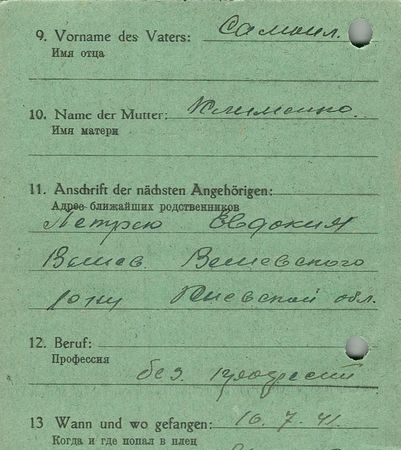 9. Vorname des Vaters: Самоил.
Имя отца
10. Name der Mutter: Клименко.
Имя матери
11. Anschrift der nächsten Angehörigen:
Адрес ближайших родственников
Евдокия
Киевской обл.
12. Beruf:
Профессия
без професий
13 Wann und wo gefangen: 16. 7. 41.
Когда и где попал в плен